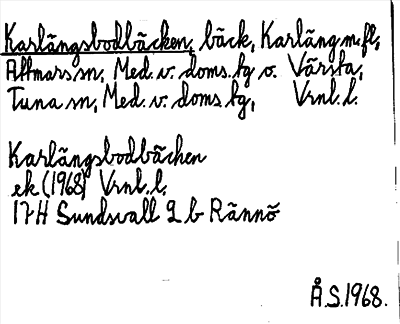 Karlängsbodbäcken, bäck, Karläng m.fl,
Attmars sn, Med. v. doms. tg o. Värsta,
Tuna sn, Med. v. doms tg, Vrnl. l.
Karlängsbodbäcken
ek (1968) Vrnl. l.
17H Sundsvall 2 b Rännö
Å.S. 1968.